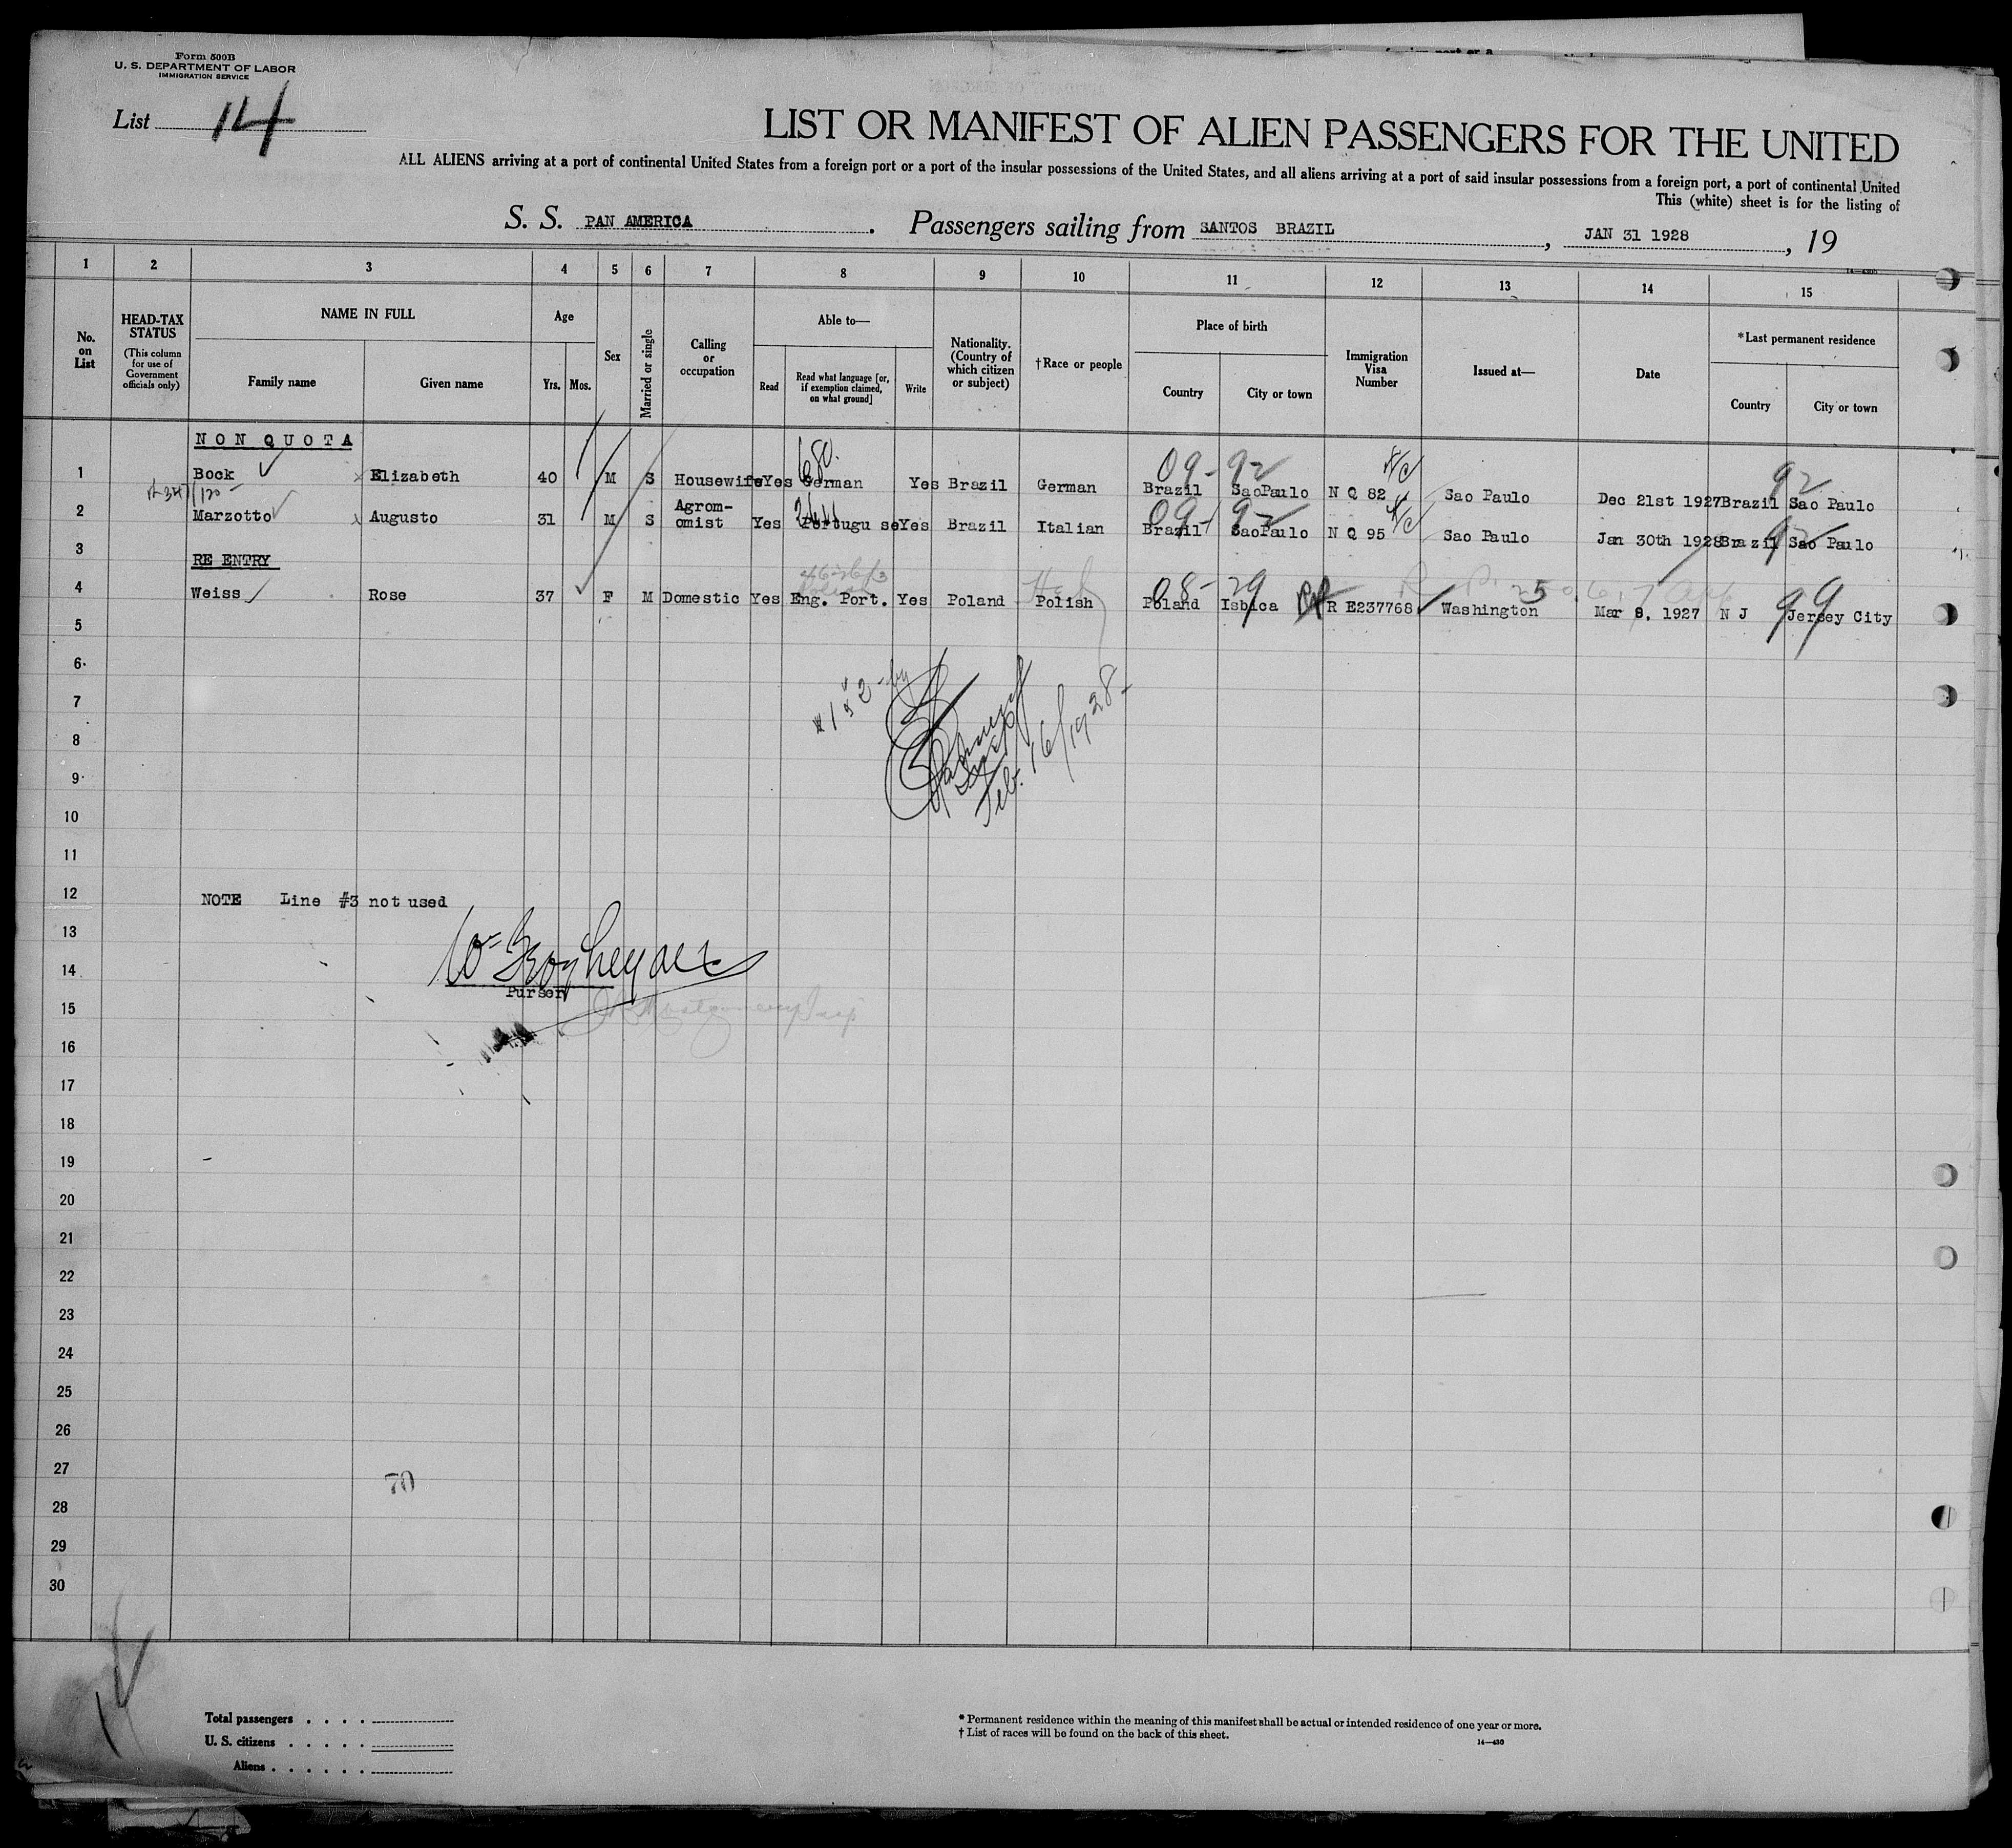 Form 500B
U. S. DEPARTMENT OF LABOR
IMMIGRATION SERVICE
List 14
LIST OR MANIFEST OF ALIEN PASSENGERS FOR THE UNITED
ALL ALIENS arriving at a port of continental United States from a foreign port or a port of the insular possessions of the United States, and all aliens arriving at a port of said insular possessions from a foreign port, a port of continental United
This (white) sheet is for the listing of
S. S. PAN AMERICA . Passengers sailing from SANTOS BRAZIL , JAN 31 1928 , 19
1 2 3 4 5 6 7 8 9 10 11 12 13 14 15
No. on List
HEAD-TAX STATUS
(This column for use of Government officials only)
NAME IN FULL
Family name Given name
Age
Yrs. Mos.
Sex
Married or single
Calling or occupation
Able to—
Read Read what language [or, if exemption claimed, on what ground] Write
Nationality. (Country of which citizen or subject)
†Race or people
Place of birth
Country City or town
Immigration Visa Number
Issued at—
Date
*Last permanent residence
Country City or town
NON QUOTA
1 Bock Elizabeth 40 M S Housewife Yes German Yes Brazil German Brazil SaoPaulo N Q 82 Sao Paulo Dec 21st 1927 Brazil Sao Paulo
680. 09- 92 92
2 Marzotto Augusto 31 M S Agrom-omist Yes Portugu se Yes Brazil Italian Brazil SaoPaulo N Q 95 Sao Paulo Jan 30th 1928 Brazil Sao Paulo
09- 92
3 RE ENTRY
4 Weiss Rose 37 F M Domestic Yes Eng. Port. Yes Poland Polish Poland Isbica R E237768 Washington Mar 8, 1927 N J Jersey City
08- 29 RP 99
5
6
7
8
9
10
11
#1 & 2 - by
Feb. 16/1928-
12 NOTE Line #3 not used
13
14
Purser
15
16
17
18
19
20
21
22
23
24
25
26
27
70
28
29
30
Total passengers . . . .
U. S. citizens . . . . .
Aliens . . . . . .
* Permanent residence within the meaning of this manifest shall be actual or intended residence of one year or more.
† List of races will be found on the back of this sheet.
14—430